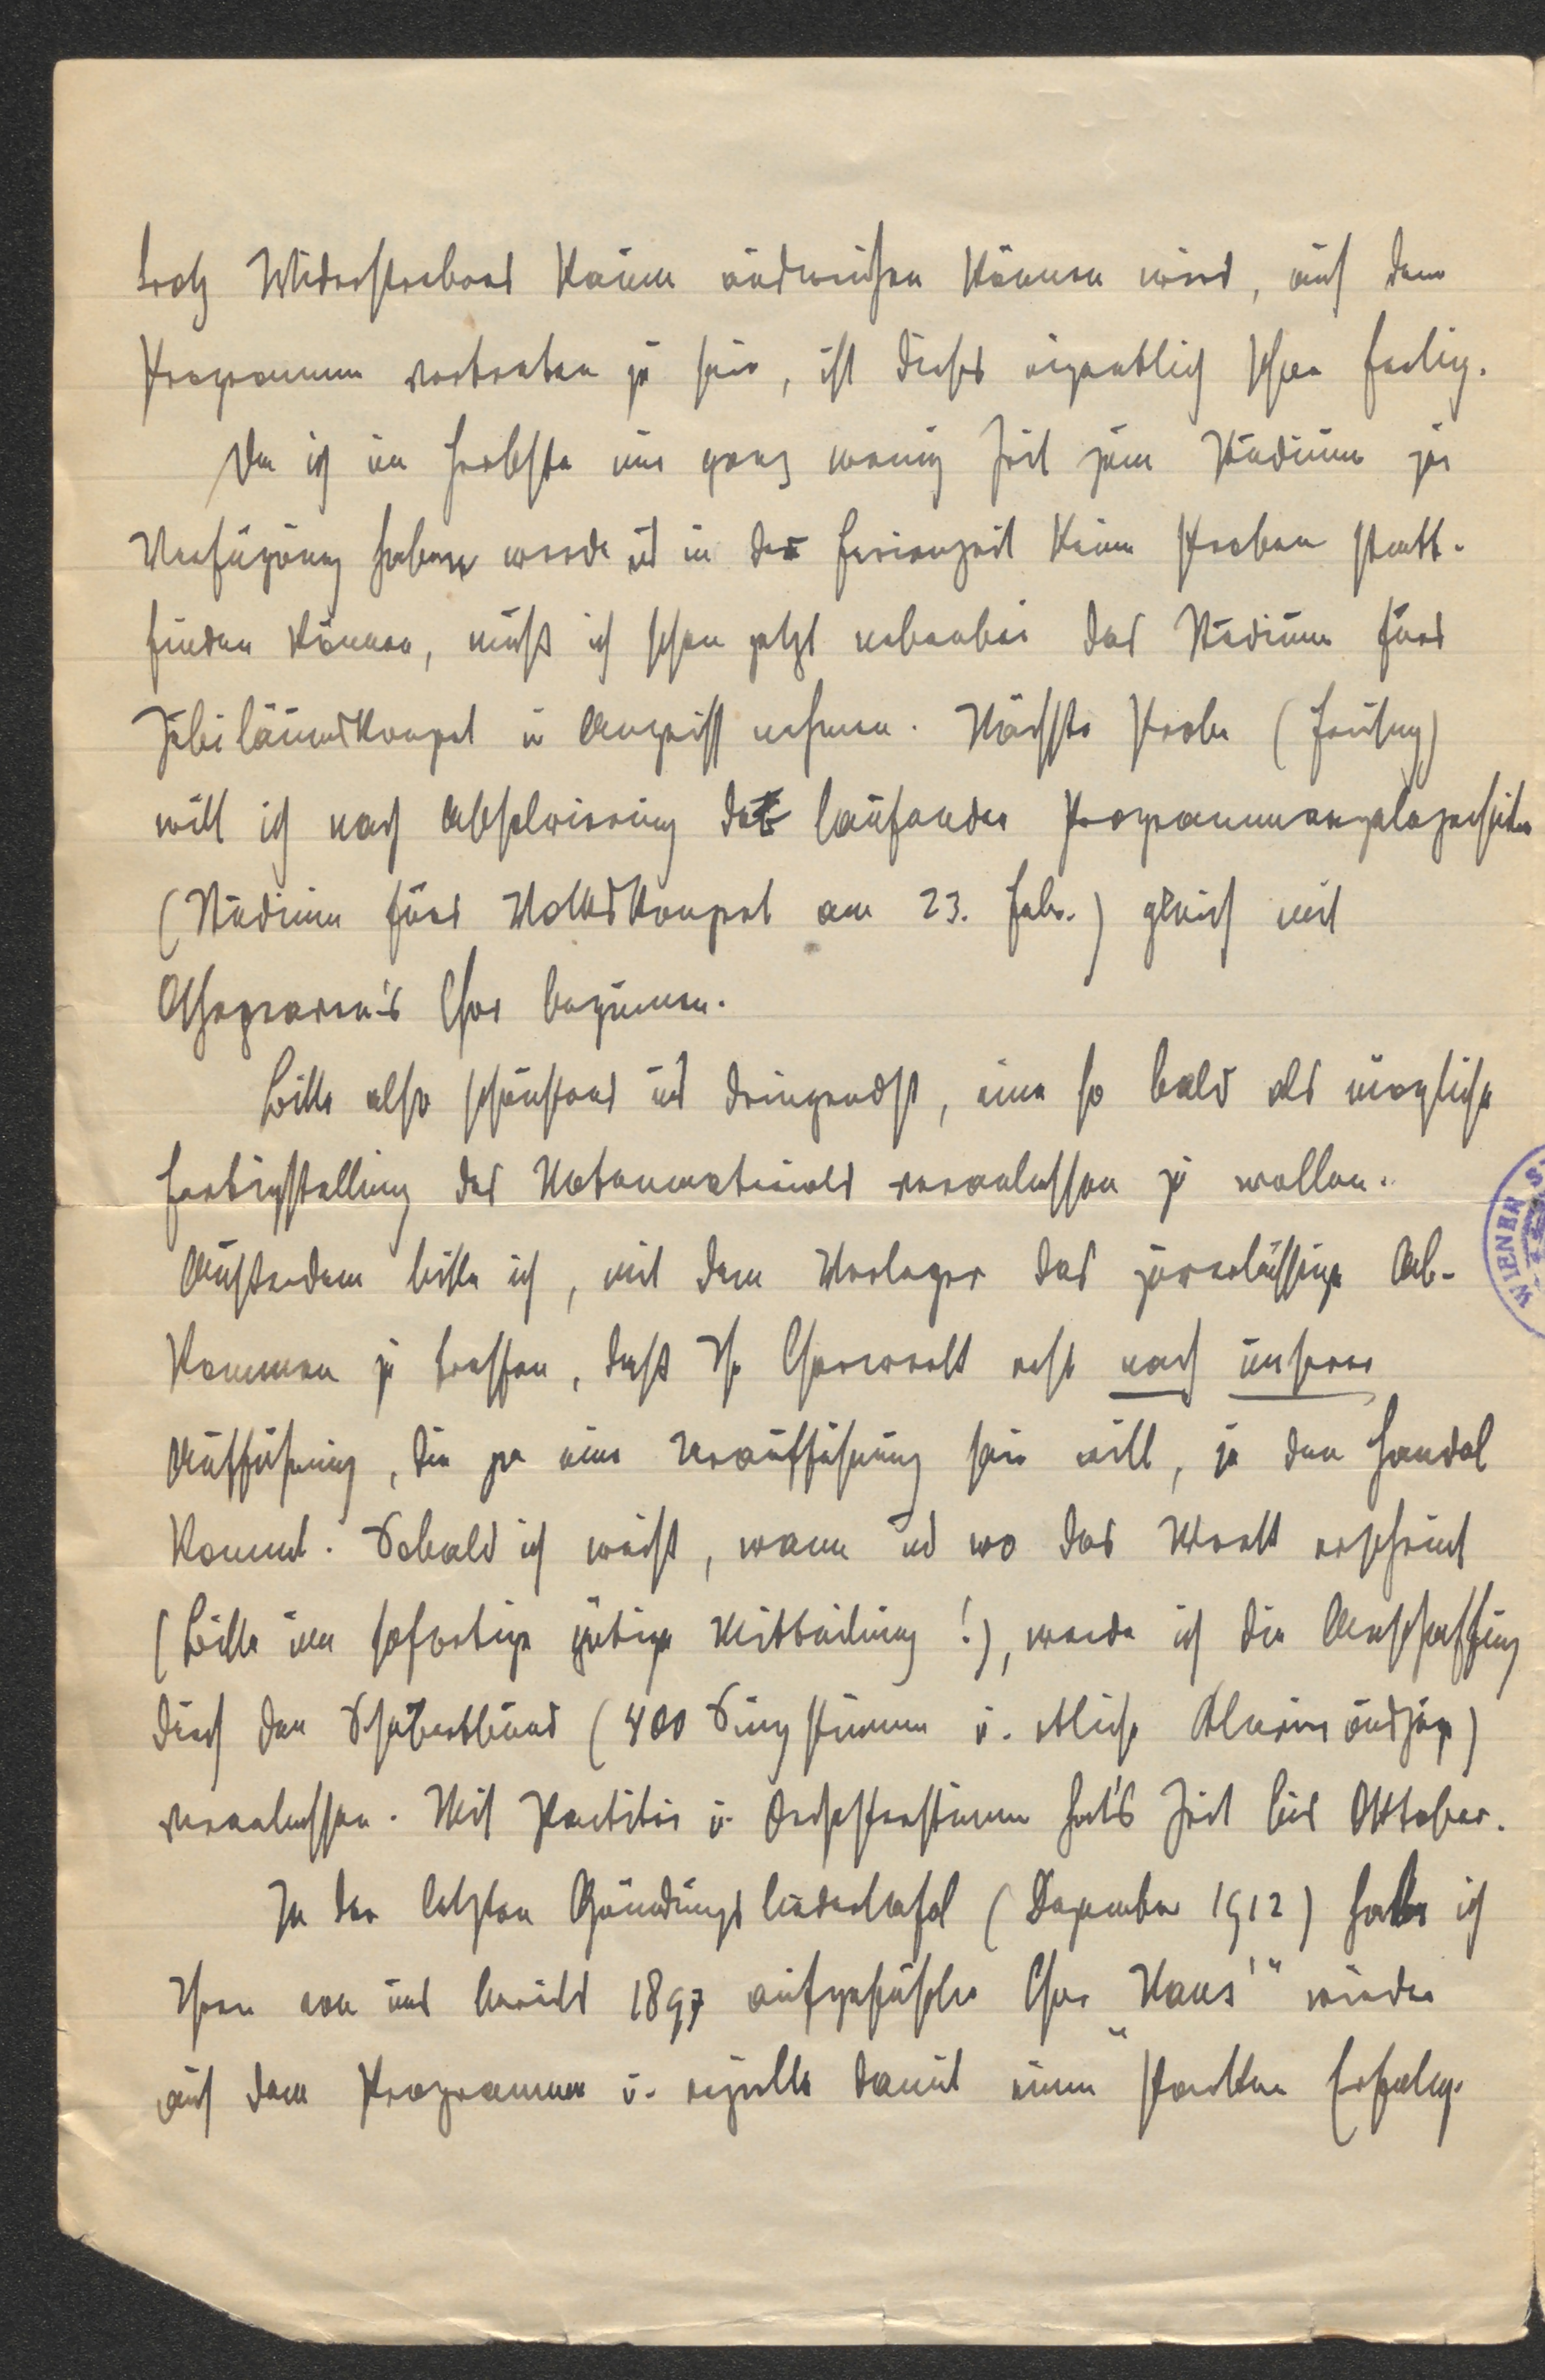 trotz Widerstrebens kaum ausweichen können wird, auf dem
Programm vertreten zu sein, ist dieses eigentlich schon fertig.
Da ich im Herbste nur ganz wenig Zeit zum Studium zur
Verfügung haben werde und in der Ferienzeit keine Proben statt-
finden können, muß ich schon jetzt nebenbei das Studium fürs
Jubiläumskonzert in Angriff nehmen. Nächste Probe (Freitag)
will ich nach Absolvierung der laufenden Programmangelegenheiten
(Studium fürs Volkskonzert am 23. Febr.) gleich mit
Chor beginnen.
Bitte also schönstens und dringendst, eine so bald als mögliche
Fertigstellung des Notenmaterials veranlassen zu wollen.
Außerdem bitte ich, mit dem Verleger das zuverlässige Ab-
kommen zu treffen, daß Ihr Chorwerk erst nach unserer
Aufführung, die ja eine Uraufführung sein will, in den Handel
kommt. Sobald ich weiß, wann und wo das Werk erscheint
(Bitte um sofortige gütige Mitteilung!), werde ich die Anschaffung
durch den Schubertbund (400 Singstimmen u. etliche Klavierauszüge)
veranlassen. Mit Partitur u. Orchesterstimmen hat's Zeit bis Oktober.
In der letzten Gründungsliedertafel (Dezember 1912) hatte ich
Ihren von uns bereits 1897 aufgeführten Chor "    " wieder
auf dem Programm u. erzielte damit einen starken Erfolg.
WIENER